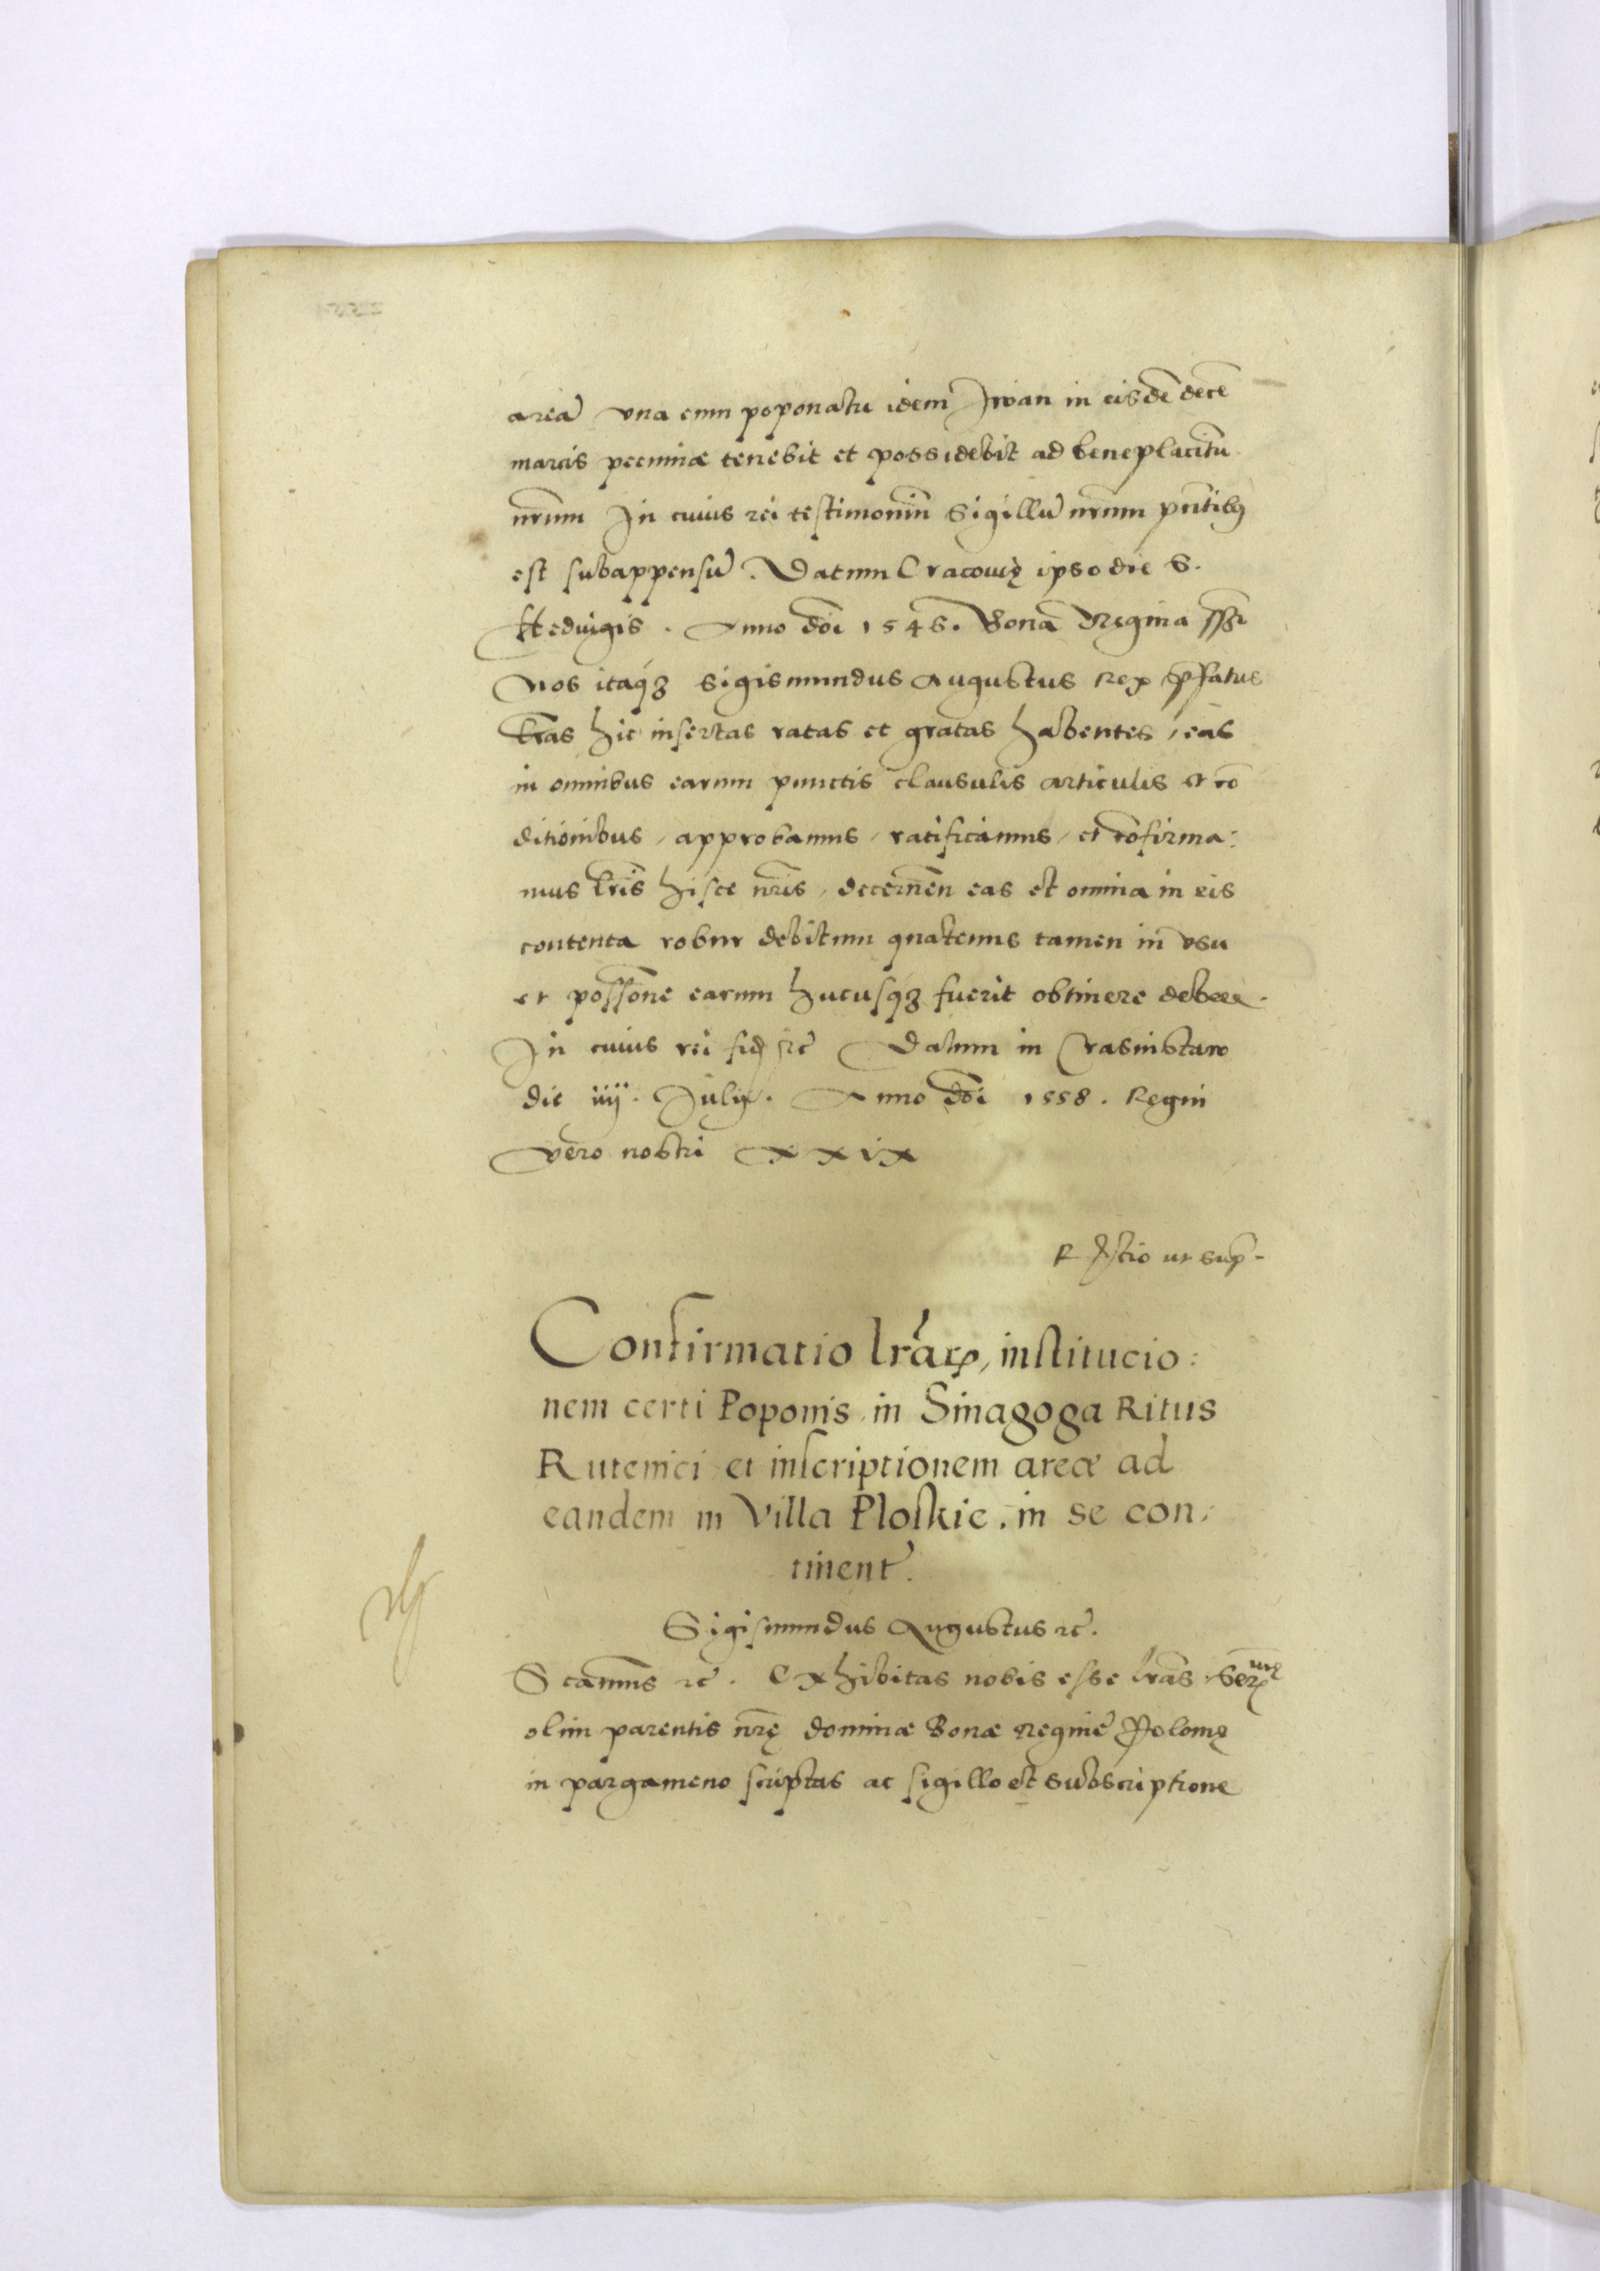 areã vna cum poponatu idem Iwan in eisdẽ decẽ
marcis pecuniæ tenebit et possidebit ad beneplacitũ
nr̃um In cuius rei testimoniũ Sigillũ nr̃um pñtibꝰ
est subappensũ. Datum Cracouię ipso die S.
Hedvigis. Anno dñi 1546. Bona Regina ss̃t
Nos itaqꝫ Sigismundus Augustus Rex p̃fatus
lr̃as hic insertas ratas et gratas habentes, eas
in omnibus earum punctis clausulis articulis et cõ
ditionibus, approbamus, ratificamus, et cõfirma:
mus lr̃is hisce nr̃is, decerneñ eas et omnia in eis
contenta robur debitum quatenus tamen in vsu
et possõne earum hucusqꝫ fuerit obtinere debere.
In cuius rei fid ꝛc̃ Datum in Crasnistaw
die iiij. Julij. Anno dñi 1558. Regni
vero nostri XXIX
R ut sup̃.
Confirmatio lr̃aꝝ, institucio:
nem certi Poponis in Sinagoga Ritus
Rutenici et inscriptionem areæ ad
eandem in Villa Ploskie. in se con:
tinent̃.
Sigismundus Augustus ꝛc̃.
S ꝛc̃. Exhibitas nobis esse lr̃as Ser
olim parentis nr̃ę dominæ Bonæ Reginę Polonię
in pargameno scriptas ac sigillo et subscriptione